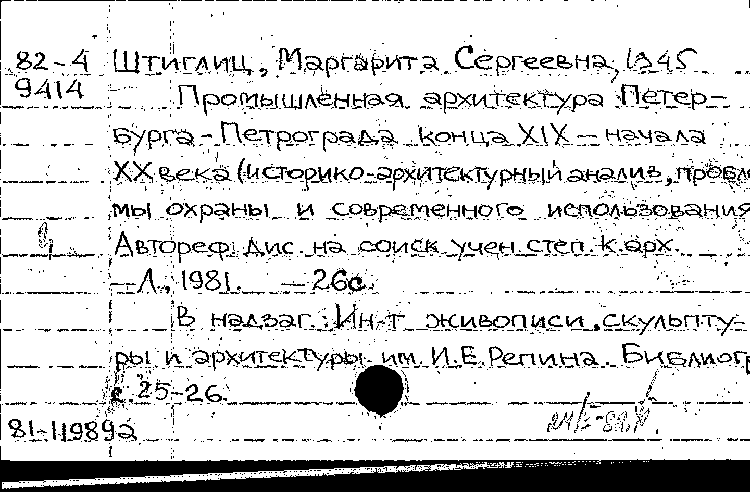 82-4 Штиглиц, Маргарита Сергеевна, 1945
9414 Промышленная архитектура Петер-
бурга-Петрограда конца XIX – начала
XX века (историко-архитектурный анализ, пробле
мы охраны и современного использования
Автореф. дис. на соиск. учен. степ. к. арх.
– Л., 1981. – 26с.
В надзаг.: Ин-т живописи, скульпту-
ры и архитектуры им. И.Е. Репина. Библиогр
с. 25-26.
81-119892